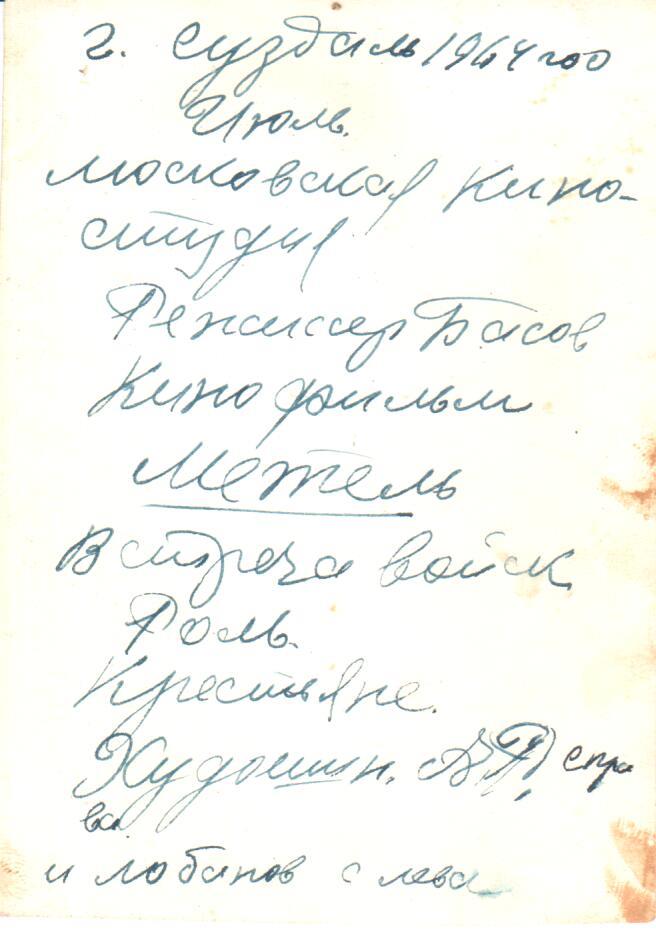 г. Суздаль 1964 год
Июль.
Московская кино-
студия
Режиссер Басов
Кино фильм
Метель
Встреча войск
Роль.
Крестьяне.
Худошин. А П, спра
ва.
и Лобанов слева